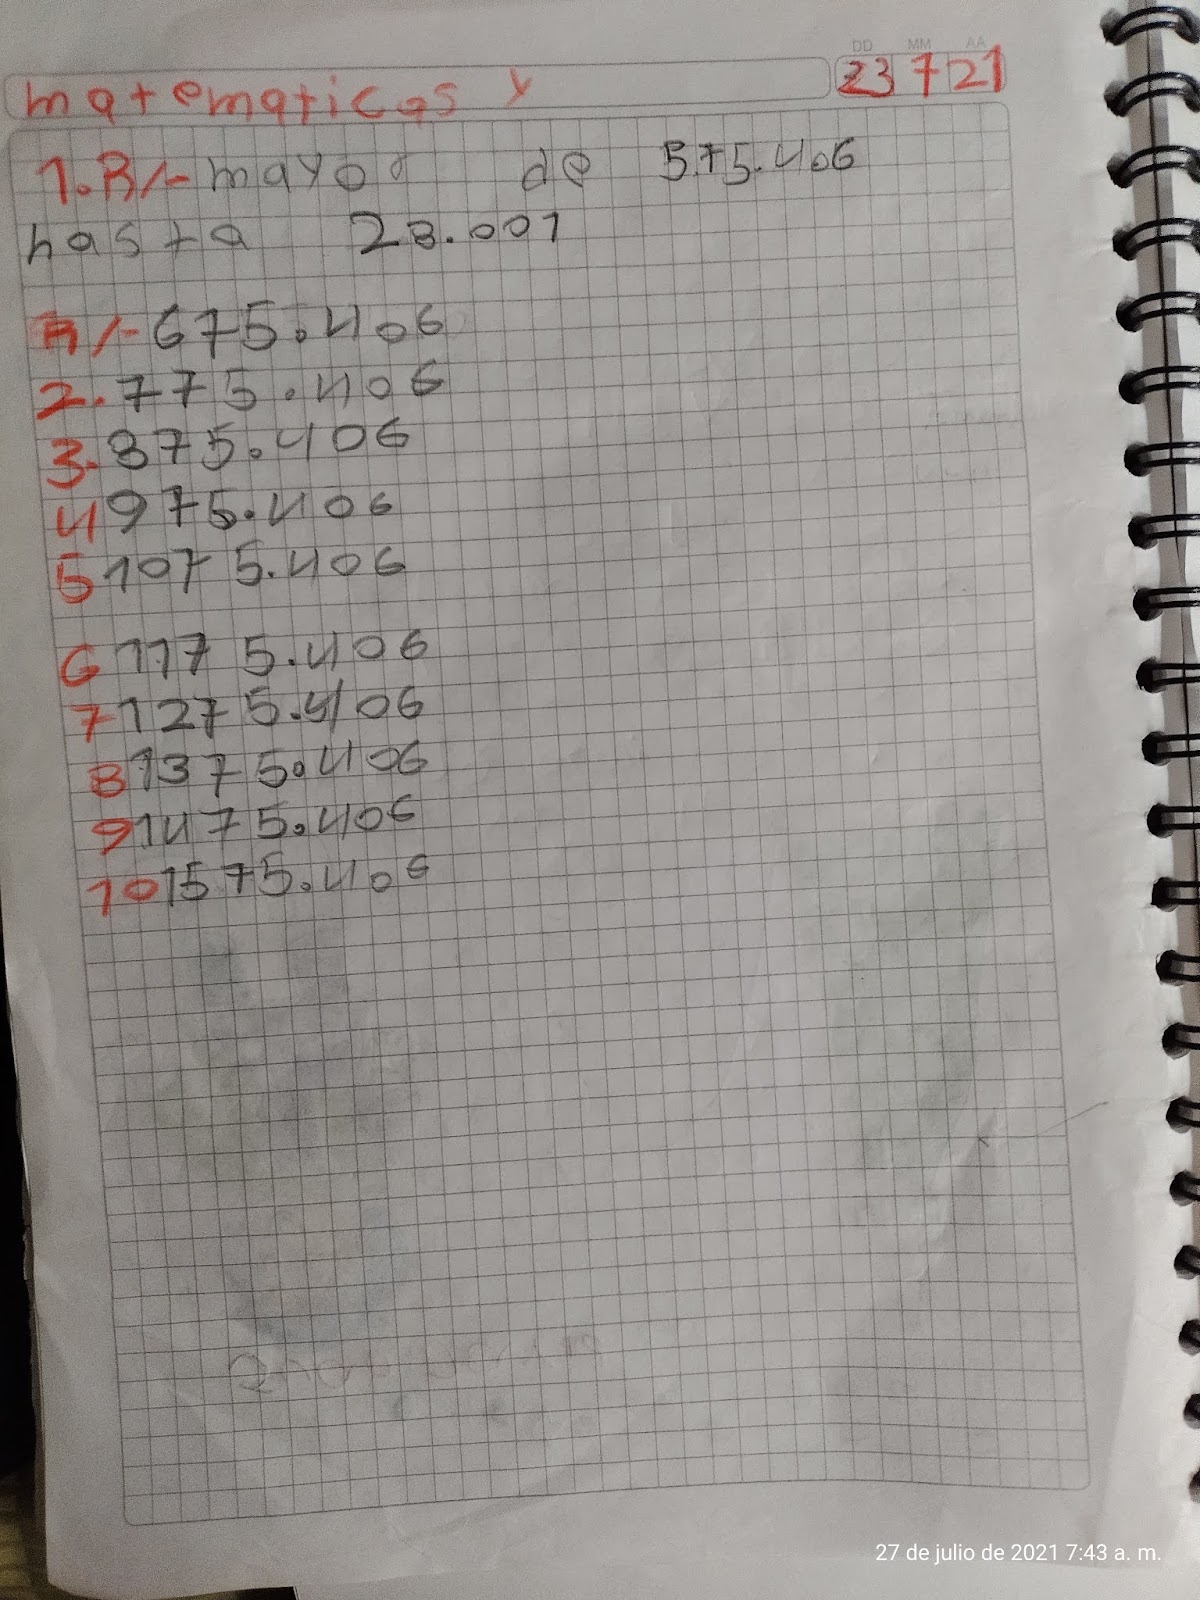 DD MM AA
matematicas y 23 7 21
1. R/- mayor de 575.406
hasta 28.001
R/- 675.406
2. 775.406
3. 875.406
4 975.406
5 1075.406
6 1175.406
7 1275.406
8 1375.406
9 1475.406
10 1575.406
27 de julio de 2021 7:43 a. m.